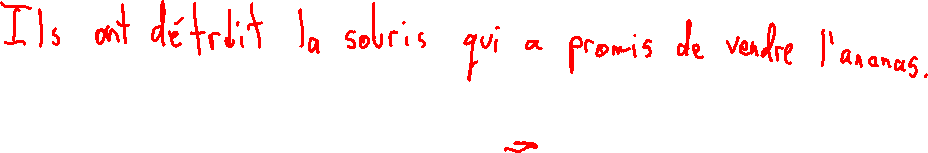 Ils ont détruit la souris qui a promis de vendre l'ananas.